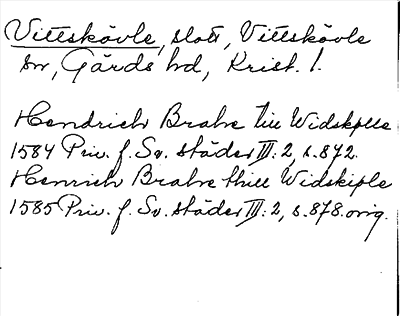 Vittskövle, slott, Vittskövle
sn, Gärds hd, Krist. l.
Hendrich Brahe till Widskplle
1584 Priv. f. Sv. städer III: 2, s. 872.
Henrich Brahe thill Widskiple
1585 Priv. f. Sv. städer III: 2, s. 878. orig.